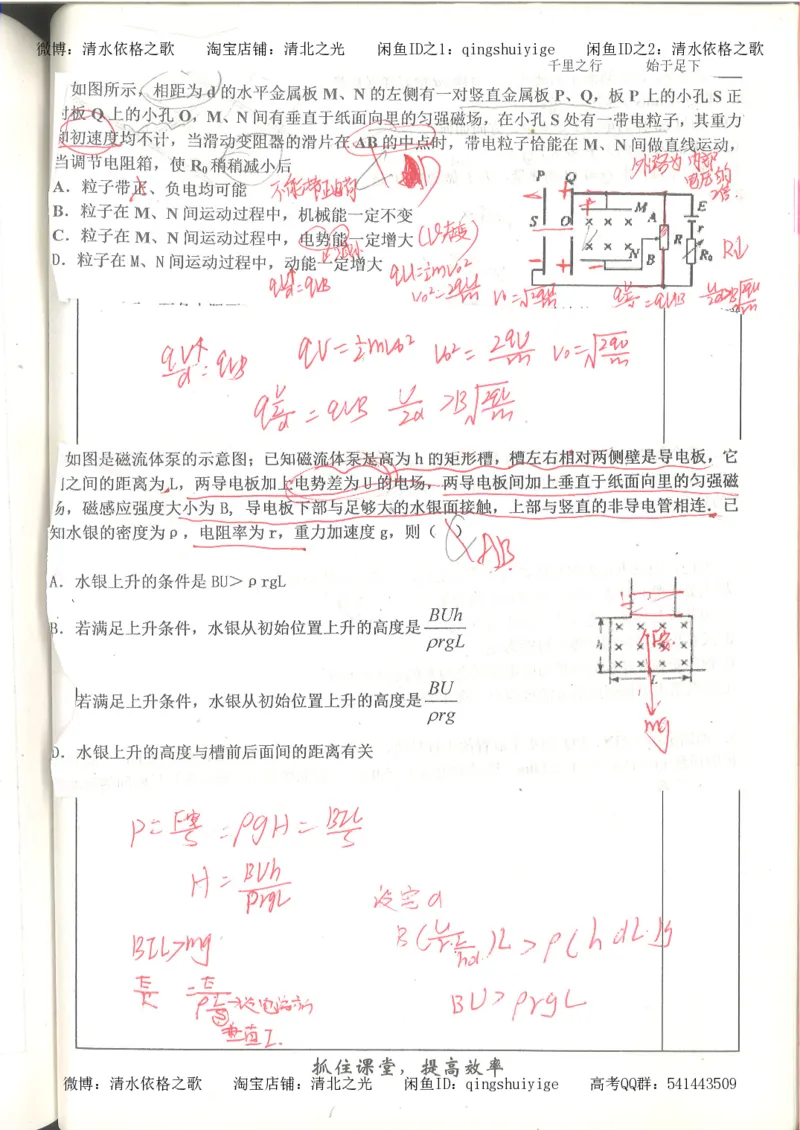 微博：清水依格之歌 淘宝店铺：清北之光 闲鱼ID之1：qingshuiyige 闲鱼ID之2：清水依格之歌
千里之行 始于足下
如图所示，相距为 d 的水平金属板 M、N 的左侧有一对竖直金属板 P、Q，板 P 上的小孔 S 正
对板 Q 上的小孔 O，M、N 间有垂直于纸面向里的匀强磁场，在小孔 S 处有一带电粒子，其重力
和初速度均不计，当滑动变阻器的滑片在 AB 的中点时，带电粒子恰能在 M、N 间做直线运动，
当调节电阻箱，使 R₀ 稍稍减小后
A．粒子带正、负电均可能 不能带正电荷
B．粒子在 M、N 间运动过程中，机械能一定不变
C．粒子在 M、N 间运动过程中，电势能一定增大
D．粒子在 M、N 间运动过程中，动能一定增大
P Q M A E S O r R R₀ N B
R↓
qU=½mv₀²
qU=½mv₀² v₀²=2qU/m v₀=√2qU/m
如图是磁流体泵的示意图；已知磁流体泵是高为 h 的矩形槽，槽左右相对两侧壁是导电板，它
们之间的距离为 L，两导电板加上电势差为 U 的电场，两导电板间加上垂直于纸面向里的匀强磁
场，磁感应强度大小为 B，导电板下部与足够大的水银面接触，上部与竖直的非导电管相连．已
知水银的密度为 ρ，电阻率为 r，重力加速度 g，则（ ）
AB
A．水银上升的条件是 BU＞ρrgL
B．若满足上升条件，水银从初始位置上升的高度是 BUh/ρrgL
若满足上升条件，水银从初始位置上升的高度是 BU/ρrg
D．水银上升的高度与槽前后面间的距离有关
h L
mg
P=F安/S=ρgH=BIL/S
H=BUh/ρrgL
设宽d
BIL>mg
BU>ρrgL
垂直I.
抓住课堂，提高效率
微博：清水依格之歌 淘宝店铺：清北之光 闲鱼ID：qingshuiyige 高考QQ群：541443509